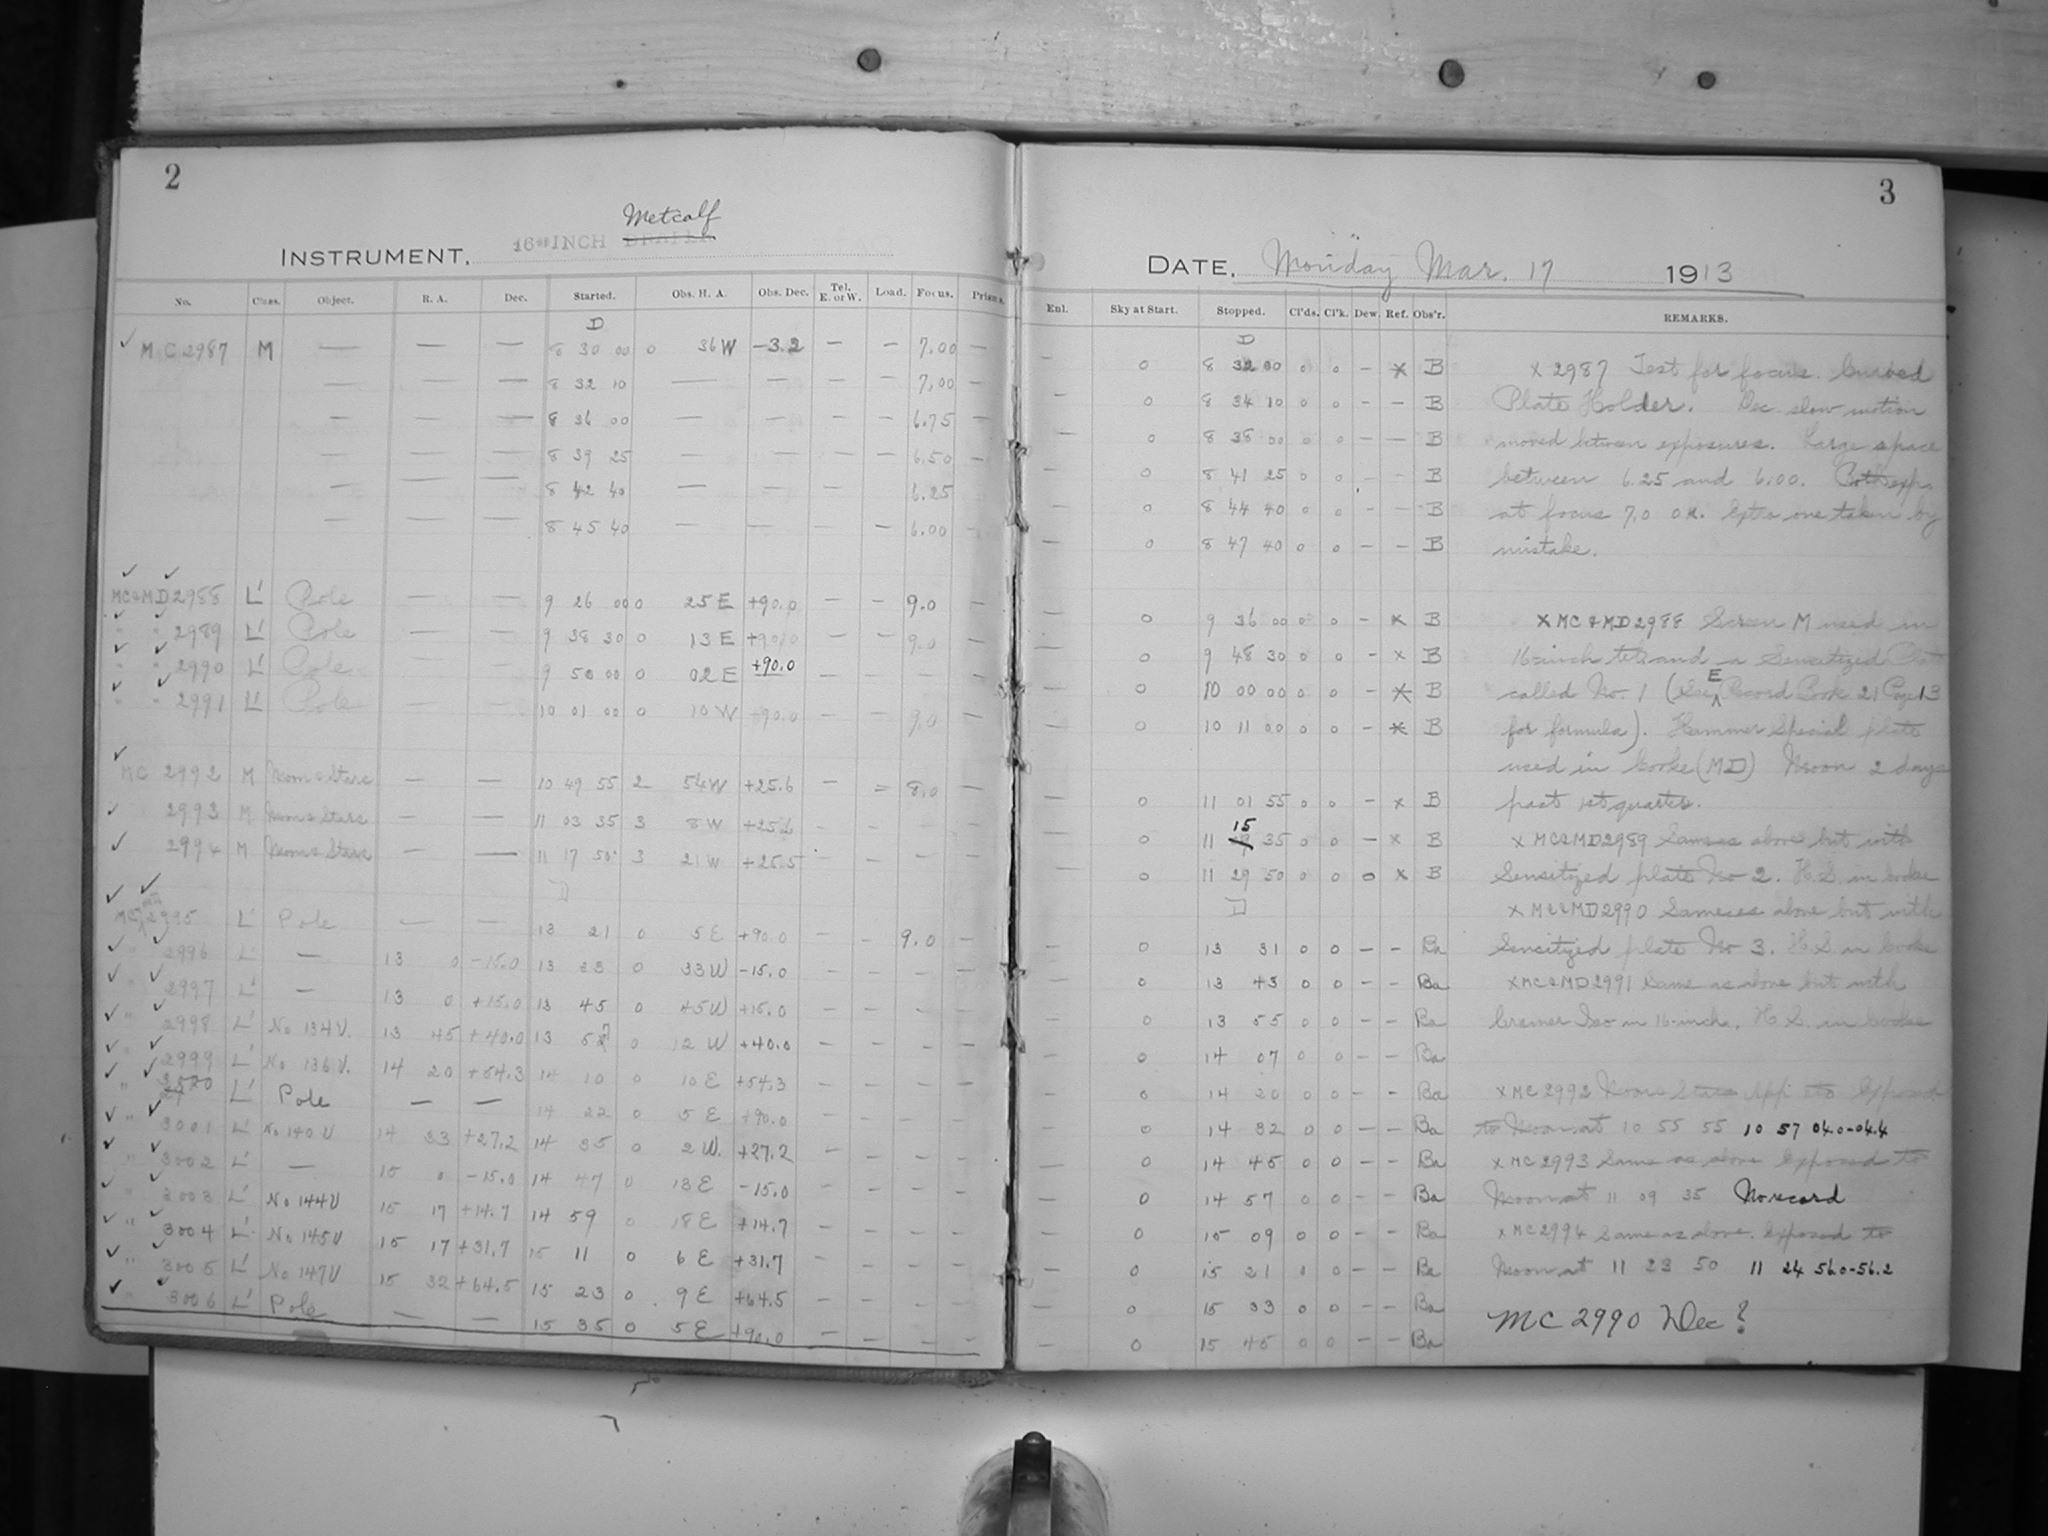 2
Metcalf
INSTRUMENT, 16 INCH
No. Class. Object. R. A. Dec. Started. Obs. H. A. Obs. Dec. Tel. E. or W. Load. Focus. Prisms.
D
MC 2987 M — — — 8 30 00 0 36 W -3.2 — — 7.00 —
— — — 8 32 10 — — — — 7.00 —
— — — 8 36 00 — — — — 6.75 —
— — — 8 39 25 — — — — 6.50 —
— — — 8 42 40 — — — — 6.25
— — — 8 45 40 — — — — 6.00 —
MC & MD 2988 L' Pole — — 9 26 00 0 25 E +90.0 — — 9.0 —
" " 2989 L' Pole — — 9 38 30 0 13 E +90.0 — — 9.0 —
" " 2990 L' Pole — — 9 50 00 0 02 E +90.0 — — — —
" " 2991 L' Pole — — 10 01 00 0 10 W +90.0 — — 9.0 —
MC 2992 M Moon & Stars — — 10 49 55 2 54 W +25.6 — = 8.0 —
2993 M Moon & Stars — — 11 03 35 3 8 W +25.6 — — — —
2994 M Moon & Stars — — 11 17 50 3 21 W +25.5 — — — —
D
MC & MD 2995 L' Pole — — 13 21 0 5 E +90.0 — — 9.0 —
" 2996 L' — 13 0 -15.0 13 33 0 33 W -15.0 — — — —
" 2997 L' — 13 0 +15.0 13 45 0 45 W +15.0 — — — —
" 2998 L' No 134 U. 13 45 +40.0 13 57 0 12 W +40.0 — — — —
" 2999 L' No 136 U. 14 20 +54.3 14 10 0 10 E +54.3 — — — —
" L' Pole — — 14 22 0 5 E +90.0 — — — —
" 3001 L' No 140 U 14 33 +27.2 14 35 0 2 W. +27.2 — — — —
" 3002 L' — 15 0 -15.0 14 47 0 13 E -15.0 — — — —
" 3003 L' No 144 U 15 17 +14.7 14 59 0 18 E +14.7 — — — —
" 3004 L' No 145 U 15 17 +31.7 15 11 0 6 E +31.7 — — — —
" 3005 L' No 147 U 15 32 +64.5 15 23 0 9 E +64.5 — — — —
" 3006 L' Pole — — 15 35 0 5 E +90.0 — — — —
3
DATE, Monday Mar. 17 1913
Enl. Sky at Start. Stopped. Cl'ds. Cl'k. Dew. Ref. Obs'r. REMARKS.
D
— 0 8 32 00 0 0 — x B x 2987 Test for focus. Curved
— 0 8 34 10 0 0 — — B Plate Holder. Dec. slow motion
— 0 8 38 00 0 0 — — B moved between exposures. Large space
— 0 8 41 25 0 0 — — B between 6.25 and 6.00. Both exps
— 0 8 44 40 0 0 — — B at focus 7.0 OK. Extra one taken by
— 0 8 47 40 0 0 — — B mistake.
— 0 9 36 00 0 0 — x B x MC & MD 2988 Screen M used in
— 0 9 48 30 0 0 — x B 16-inch tel. and a Sensitized Plate
— 0 10 00 00 0 0 — x B called No. 1 (See E Record Book 21 Page 13
— 0 10 11 00 0 0 — x B for formula). Hammer Special plate
used in Cooke (MD) Moon 2 days
— 0 11 01 55 0 0 — x B past 1st quarter.
— 0 11 15 35 0 0 — x B x MC & MD 2989 Same as above but with
— 0 11 29 50 0 0 0 x B Sensitized plate No 2. H. S. in Cooke
D x MC & MD 2990 Same as above but with
— 0 13 31 0 0 — — Ba Sensitized plate No 3. H. S. in Cooke
— 0 13 43 0 0 — — Ba x MC & MD 2991 Same as above but with
— 0 13 55 0 0 — — Ba Cramer Iso in 16-inch. H. S. in Cooke
— 0 14 07 0 0 — — Ba
— 0 14 20 0 0 — — Ba x MC 2992 Moon & Stars App Exposed
— 0 14 32 0 0 — — Ba to Moon at 10 55 55 10 57 04.0-04.4
— 0 14 45 0 0 — — Ba x MC 2993 Same as above Exposed to
— 0 14 57 0 0 — — Ba Moon at 11 09 35 No record
— 0 15 09 0 0 — — Ba x MC 2994 Same as above. Exposed to
— 0 15 21 0 0 — — Ba Moon at 11 23 50 11 24 56.0-56.2
— 0 15 33 0 0 — — Ba MC 2990 Dec?
— 0 15 45 0 0 — — Ba